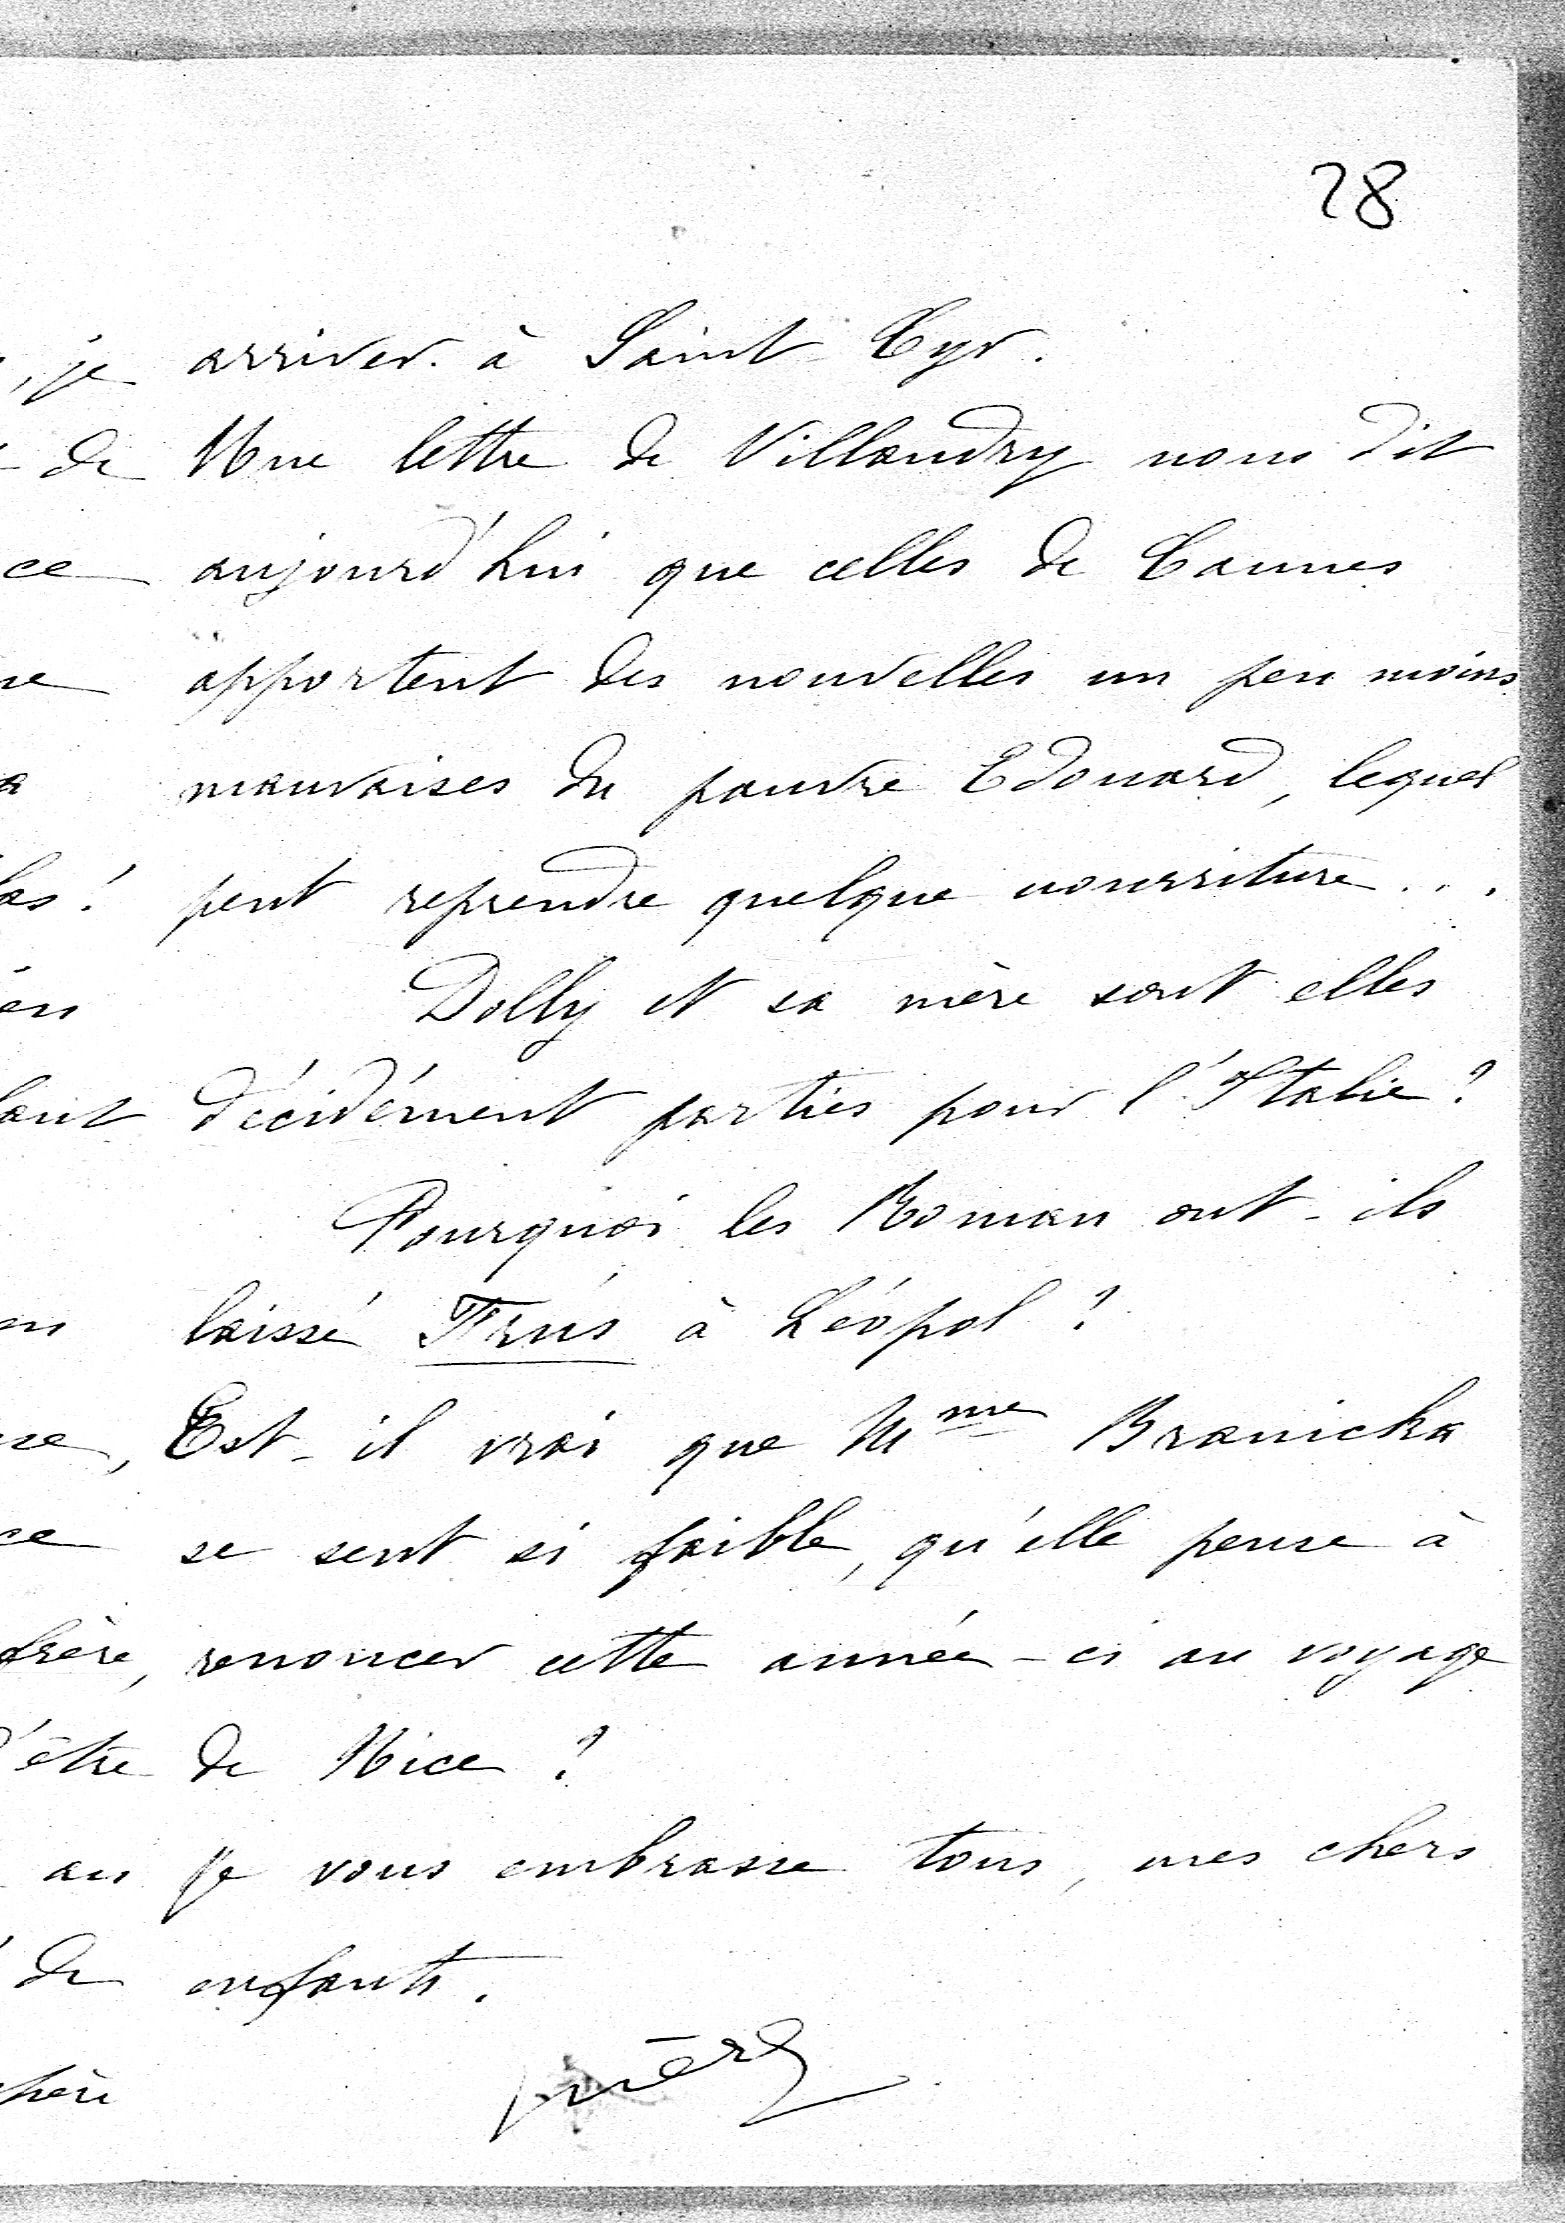 28
arriver à Saint-Cyr.
Une lettre de Villandry nous dit
aujourd'hui que celles de Cannes
apportent des nouvelles un peu moins
mauvaises du pauvre Edouard, lequel
peut reprendre quelque nourriture...
Dolly et sa mère sont elles
décidément parties pour l'Italie?
Pourquoi les Roman ont-ils
laissé à Léopol?
Est-il vrai que Mme Branicka
se sent si faible, qu'elle pense à
renoncer cette année-ci au voyage
de Nice?
Je vous embrasse tous, mes chers
enfants.
mère
, je
de
ce
las!
frère,
être
au
de